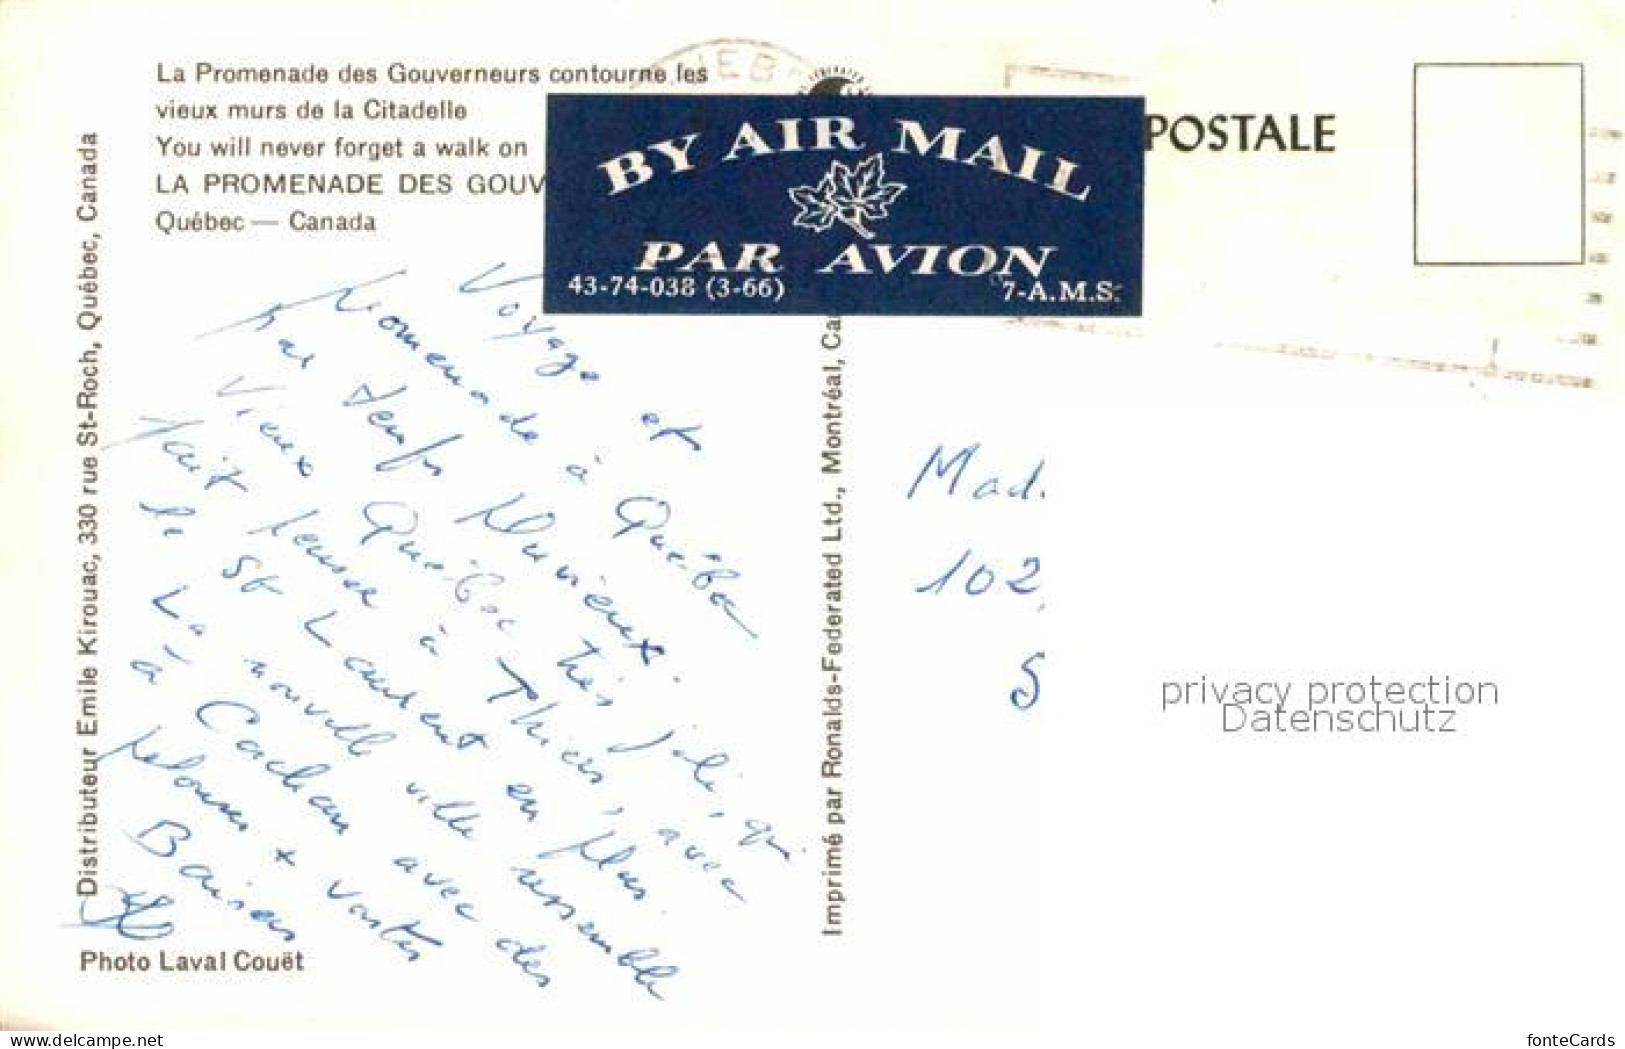 La Promenade des Gouverneurs contourne les
vieux murs de la Citadelle
You will never forget a walk on
LA PROMENADE DES GOUV
Québec — Canada
BY AIR MAIL
PAR AVION
43-74-038 (3-66)
7-A.M.S.
POSTALE
Distributeur Emile Kirouac, 330 rue St-Roch, Québec, Canada
Voyage et
Promenade à Québec
par temps pluvieux.
Vieux Québec très joli, qui
fait penser à Thiers, avec
le St Laurent en plus.
La nouvelle ville ressemble
à Cachan avec des
pelouses + vastes
Baisers
Photo Laval Couët
Imprimé par Ronalds-Federated Ltd., Montréal, Ca
Mad.
102,
S
privacy protection
Datenschutz
www.delcampe.net
fonteCards